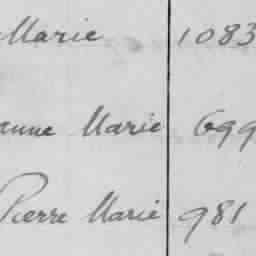 Marie 1083
anne Marie 699
Pierre Marie 981